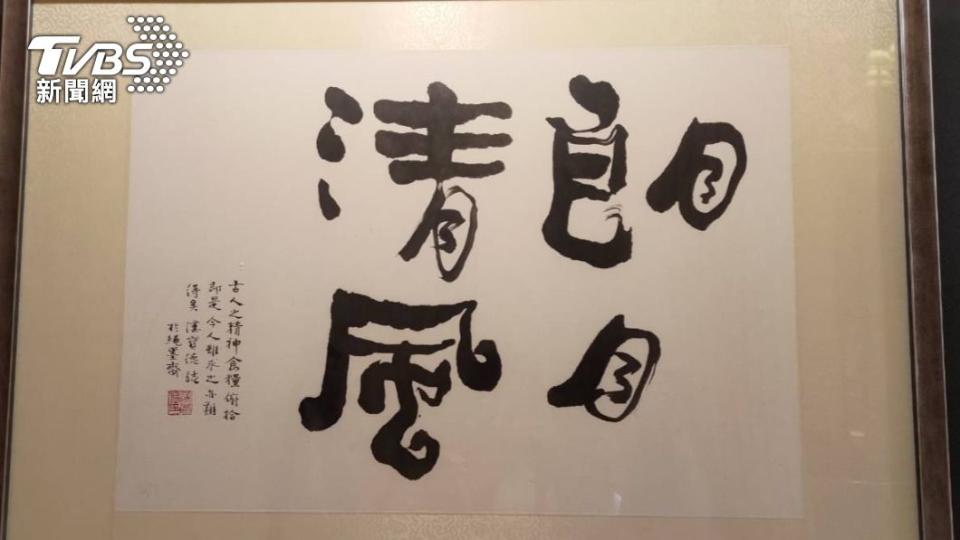 TVBS
新聞網
朗月
清風
古人之精神食糧俯拾
即是今人雖求之亦難
得矣 漢寶德 誌
於繩墨齋